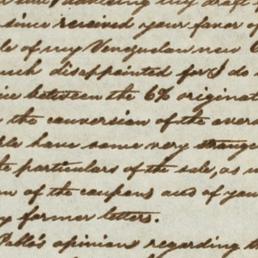 my draft
since received your favor of
le of my Venezuelan new 6
uch disappointed for I do
ce between the 6% originat
the conversion of the over
ble have some very strange
te particulars of the sale, as w
on of the coupons and of you
y former letters.
Pablo's opinions regarding th